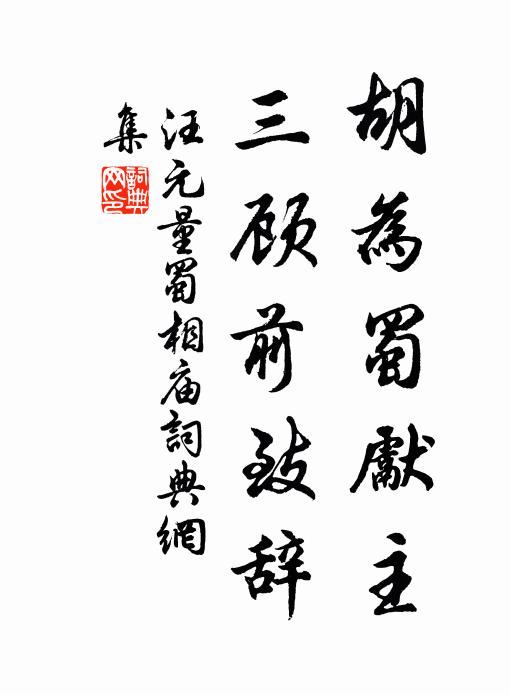 胡為蜀獻主
三顾前致辞
汪元量蜀相庙詞典網
集
詞典
网印